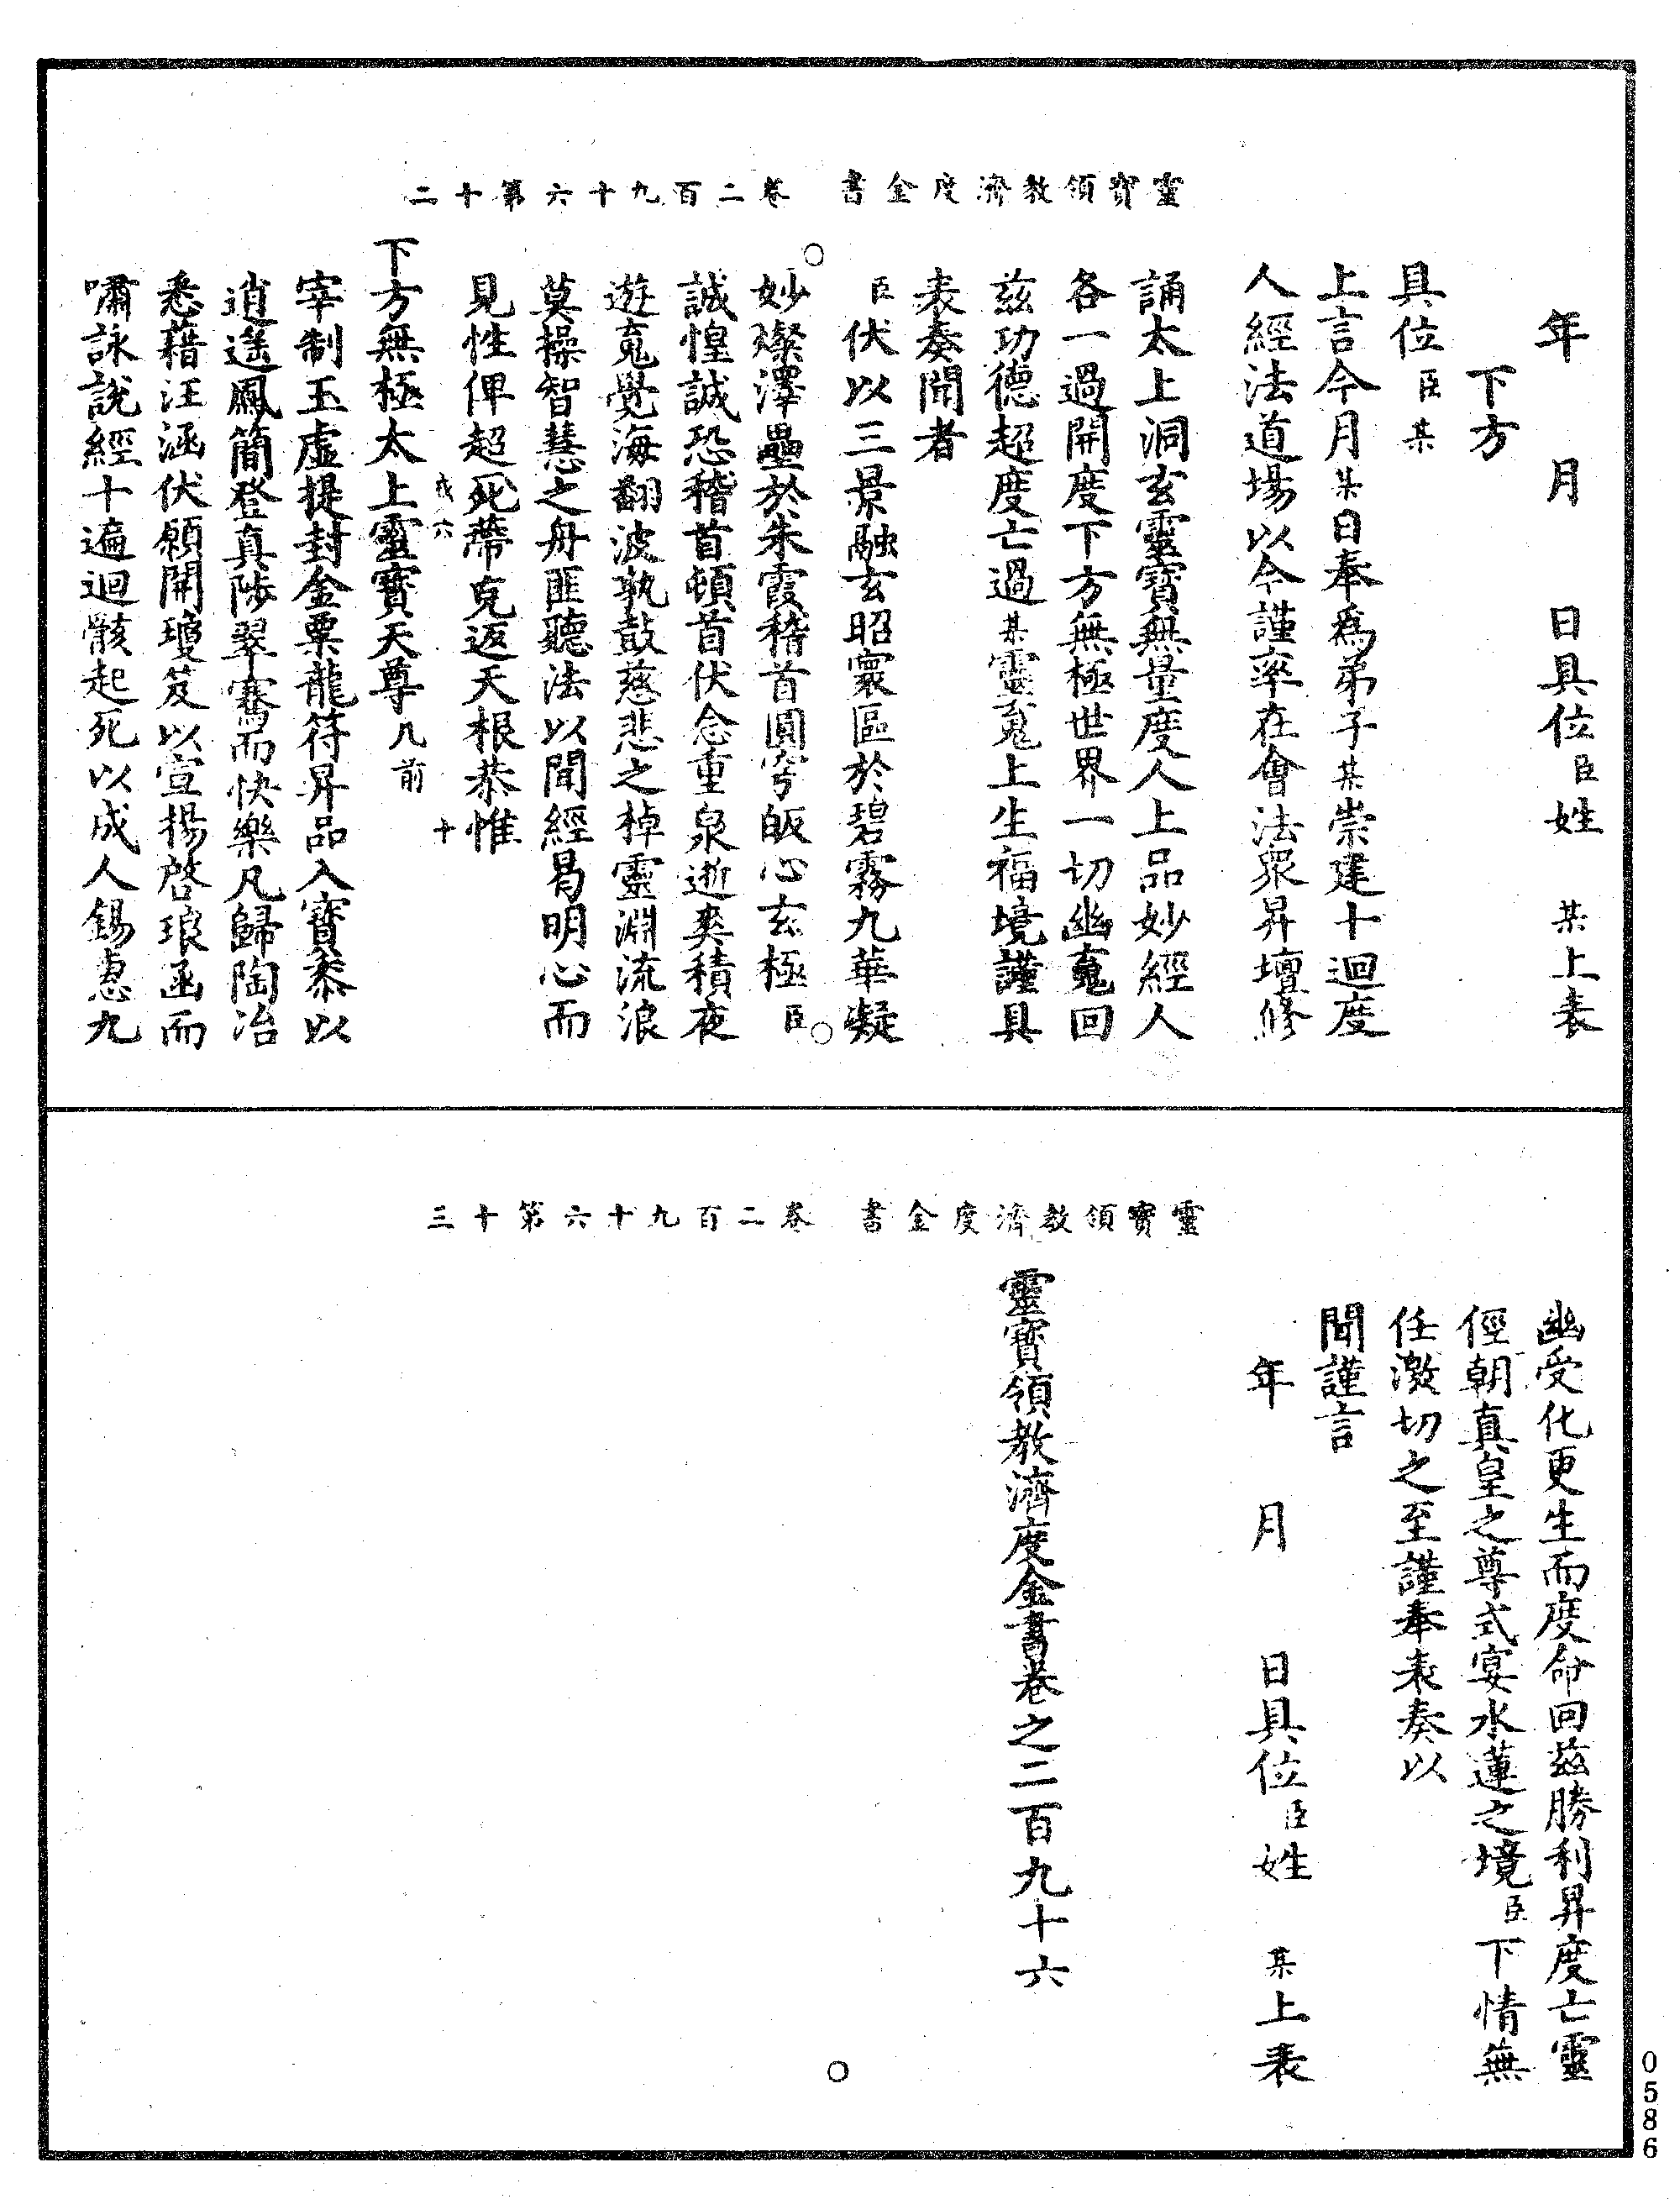 靈寶領教濟度金書　卷二百九十六第十二
年　月　日具位臣姓　某上表
下方
具位臣某
上言今月某日奉爲弟子某崇建十迴度
人經法道場以今謹率在會法眾昇壇修
誦太上洞玄靈寶無量度人上品妙經人
各一過開度下方無極世界一切幽䰟回
茲功德超度亡過某靈䰟上生福境謹具
表奏聞者
臣伏以三景融玄昭寰區於碧霧九華凝
妙燦澤壘於朱霞稽首圓穹皈心玄極臣
誠惶誠恐稽首頓首伏念重泉逝爽積夜
遊䰟覺海翻波孰鼓慈悲之棹靈淵流浪
莫操智慧之舟匪聽法以聞經曷明心而
見性俾超死蔕克返天根恭惟
戎六　十
下方無極太上靈寶天尊几前
宰制玉虛提封金粟龍符昇品入寶黍以
逍遙鳳簡登真陟翠騫而快樂凡歸陶冶
悉藉汪涵伏願開瓊笈以宣揚啓琅函而
嘯詠說經十遍迴骸起死以成人錫惠九
靈寶領教濟度金書　卷二百九十六第十三
幽受化更生而度命回茲勝利昇度亡靈
徑朝真皇之尊式宴水蓮之境臣下情無
任激切之至謹奉表奏以
聞謹言
年　月　日具位臣姓　某上表
靈寶領教濟度金書卷之二百九十六
0586